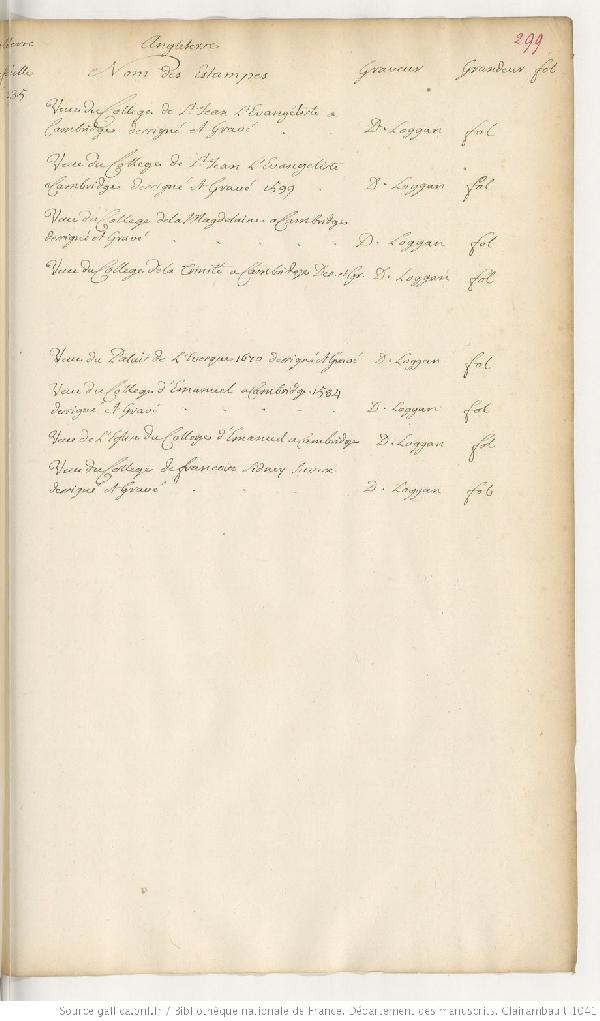 Angleterre 299
Nom des Estampes Graveur Grandeur fol
235
Veue du College de St Jean L'Evangeliste a
Cambridge dessigné et Gravé D. Loggan fol
Veue du College de St Jean L'Evangeliste
a Cambridge dessigné et Gravé 1599 D. Loggan fol
Veue du College de la Magdelaine a Cambridge
dessigné et Gravé D. Loggan fol
Veue du College de la Trinité a Cambridge Des. et Gr. D. Loggan fol
Veue du Palais de L'Evesque 1670 dessigné et Gravé D. Loggan fol
Veue du College d'Emanuel a Cambridge 1584
dessigné et Gravé D. Loggan fol
Veue de L'Eglise du College d'Emanuel a Cambridge D. Loggan fol
Veue du College de francoise Sidney
dessigné et Gravé D. Loggan fol
Source gallica.bnf.fr / Bibliothèque nationale de France. Département des manuscrits. Clairambault 1041